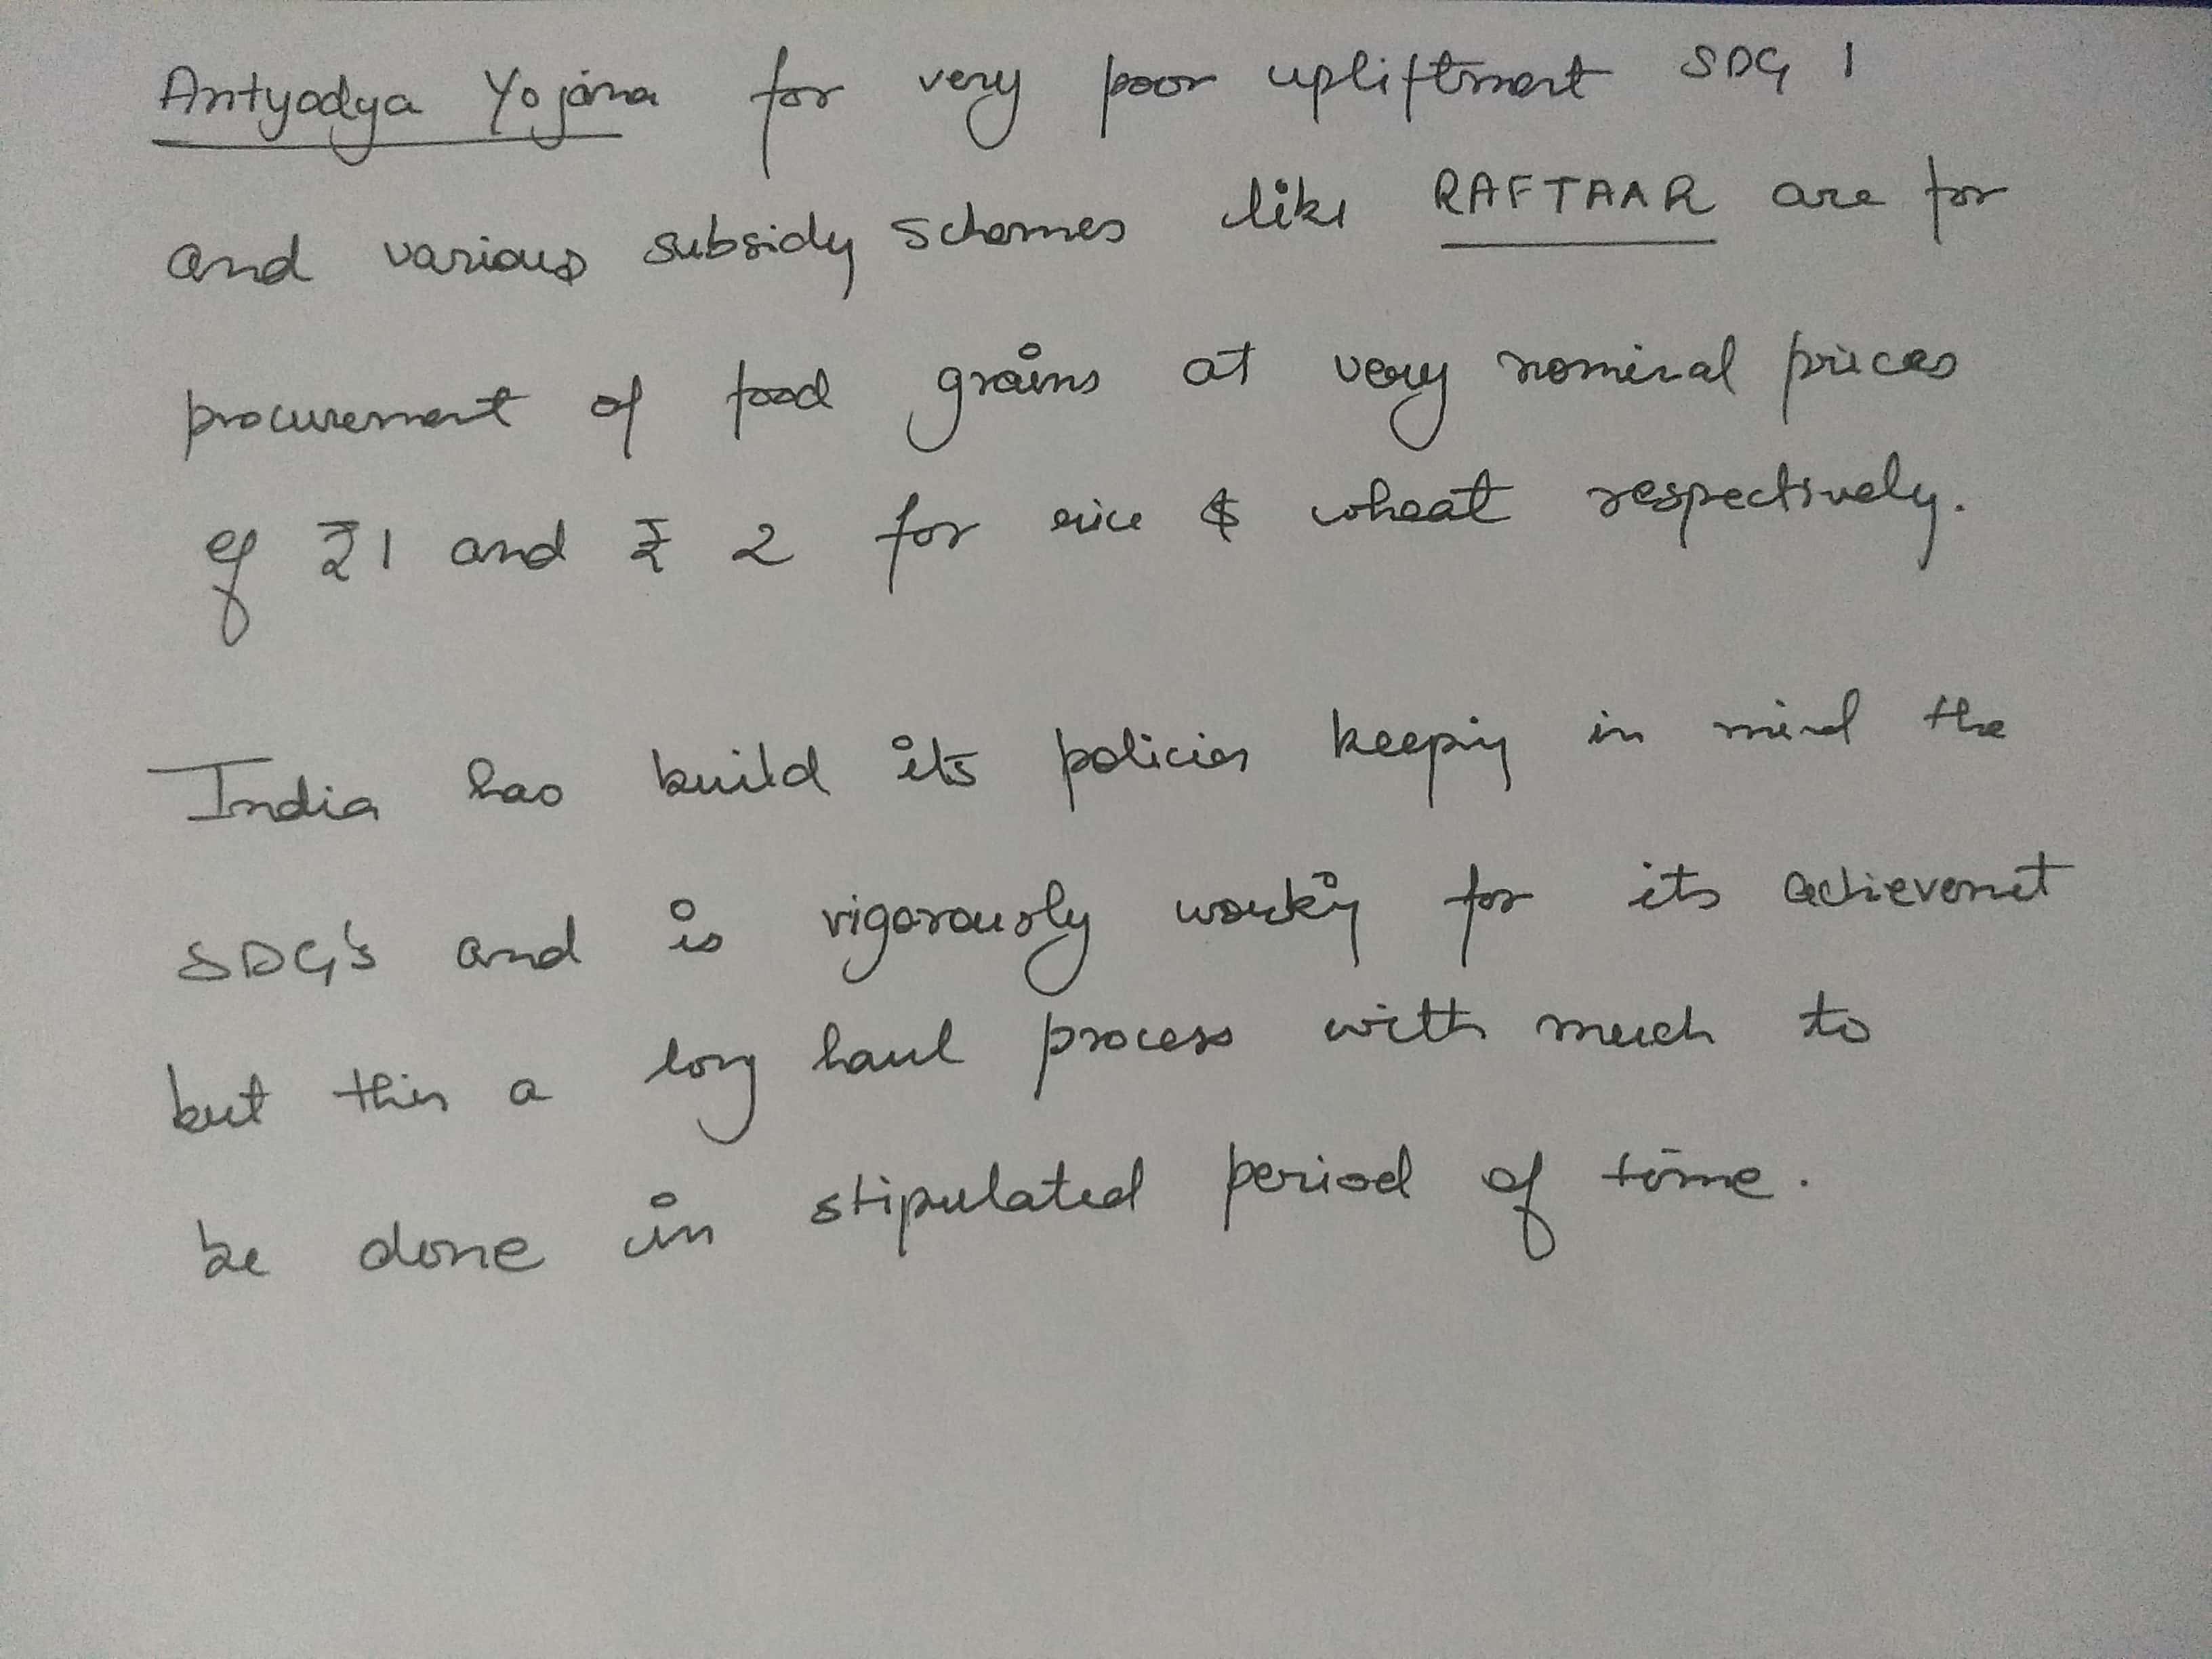 Antyodya Yojana for very poor upliftment SDG 1
and various subsidy schemes like RAFTAAR are for
procurement of food grains at very nominal prices
of ₹1 and ₹ 2 for rice & wheat respectively.
India has build its policies keeping in mind the
SDG's and is vigorously working for its achievement
but this a long haul process with much to
be done in stipulated period of time.